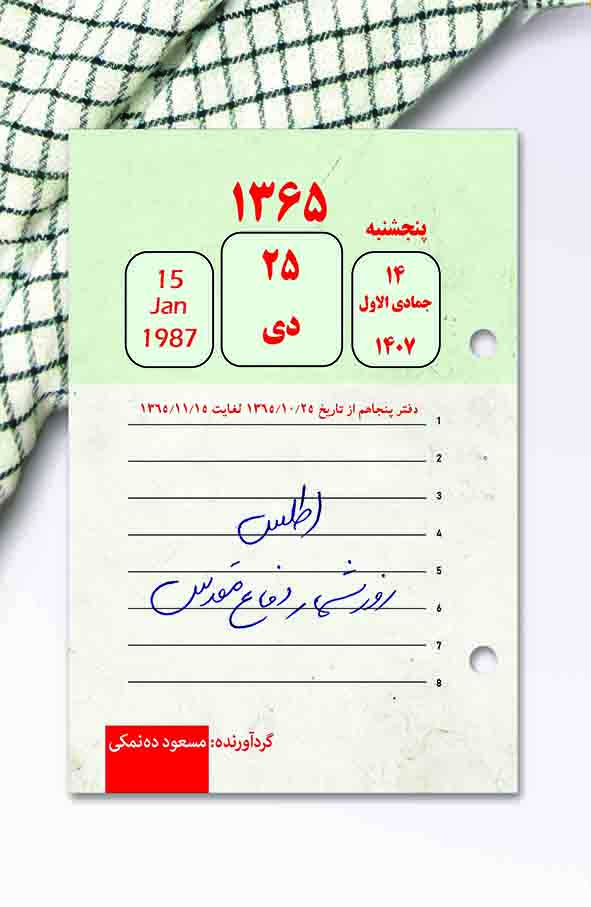 ۱۳۶۵
پنجشنبه
۱۴
جمادی الاول
۱۴۰۷
۲۵
دی
15
Jan
1987
دفتر پنجاهم از تاریخ ۱۳۶۵/۱۰/۲۵ لغایت ۱۳۶۵/۱۱/۱۵
1
2
3
اطلس
4
5
روزشمار دفاع مقدس
6
7
8
گردآورنده: مسعود ده‌نمکی